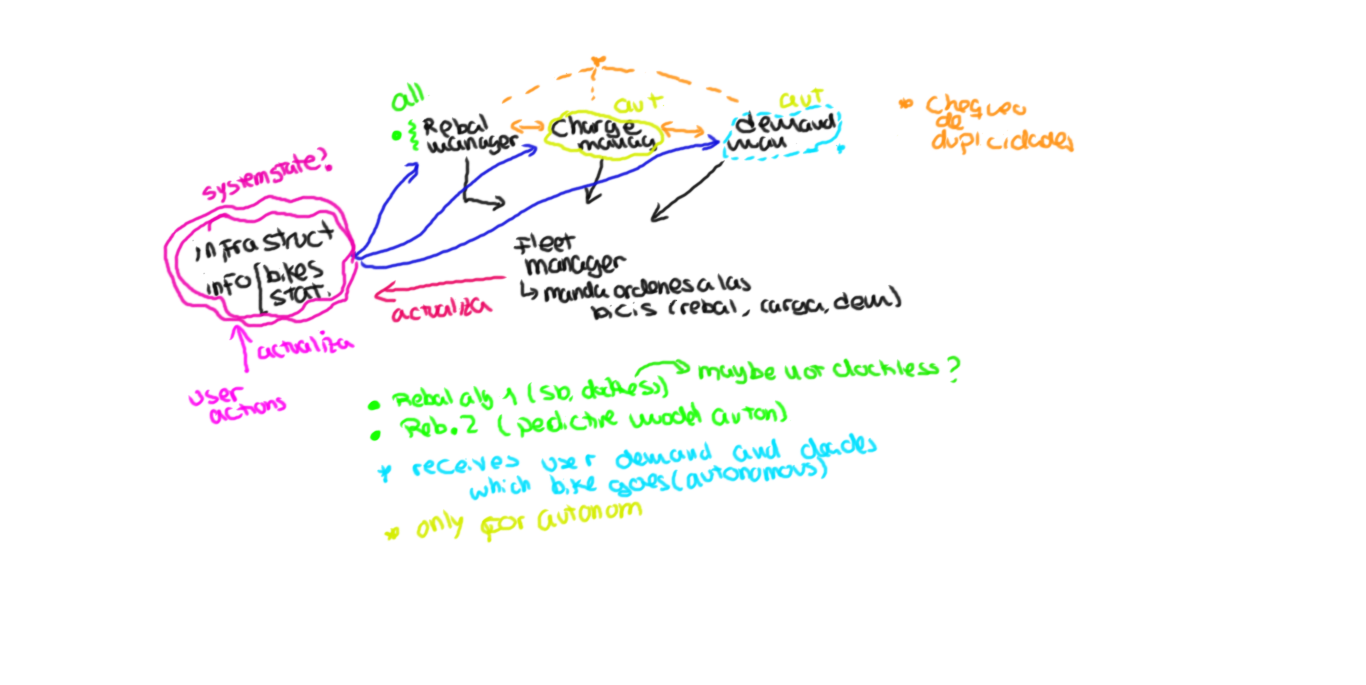 all
aut
aut
Rebal
manager
charge
manag
demand
man
* chequeo
de
duplicidades
systemstate?
infrastruct
info
bikes
stat.
Fleet
manager
↳ manda ordenes a las
bicis (rebal, carga, dem)
actualiza
actualiza
user
actions
• Rebal alg 1 (sb, dockless)
maybe not dockless?
• Reb. 2 (pedictive model auton)
* receives user demand and decides
which bike goes (autonomous)
* only for autonom